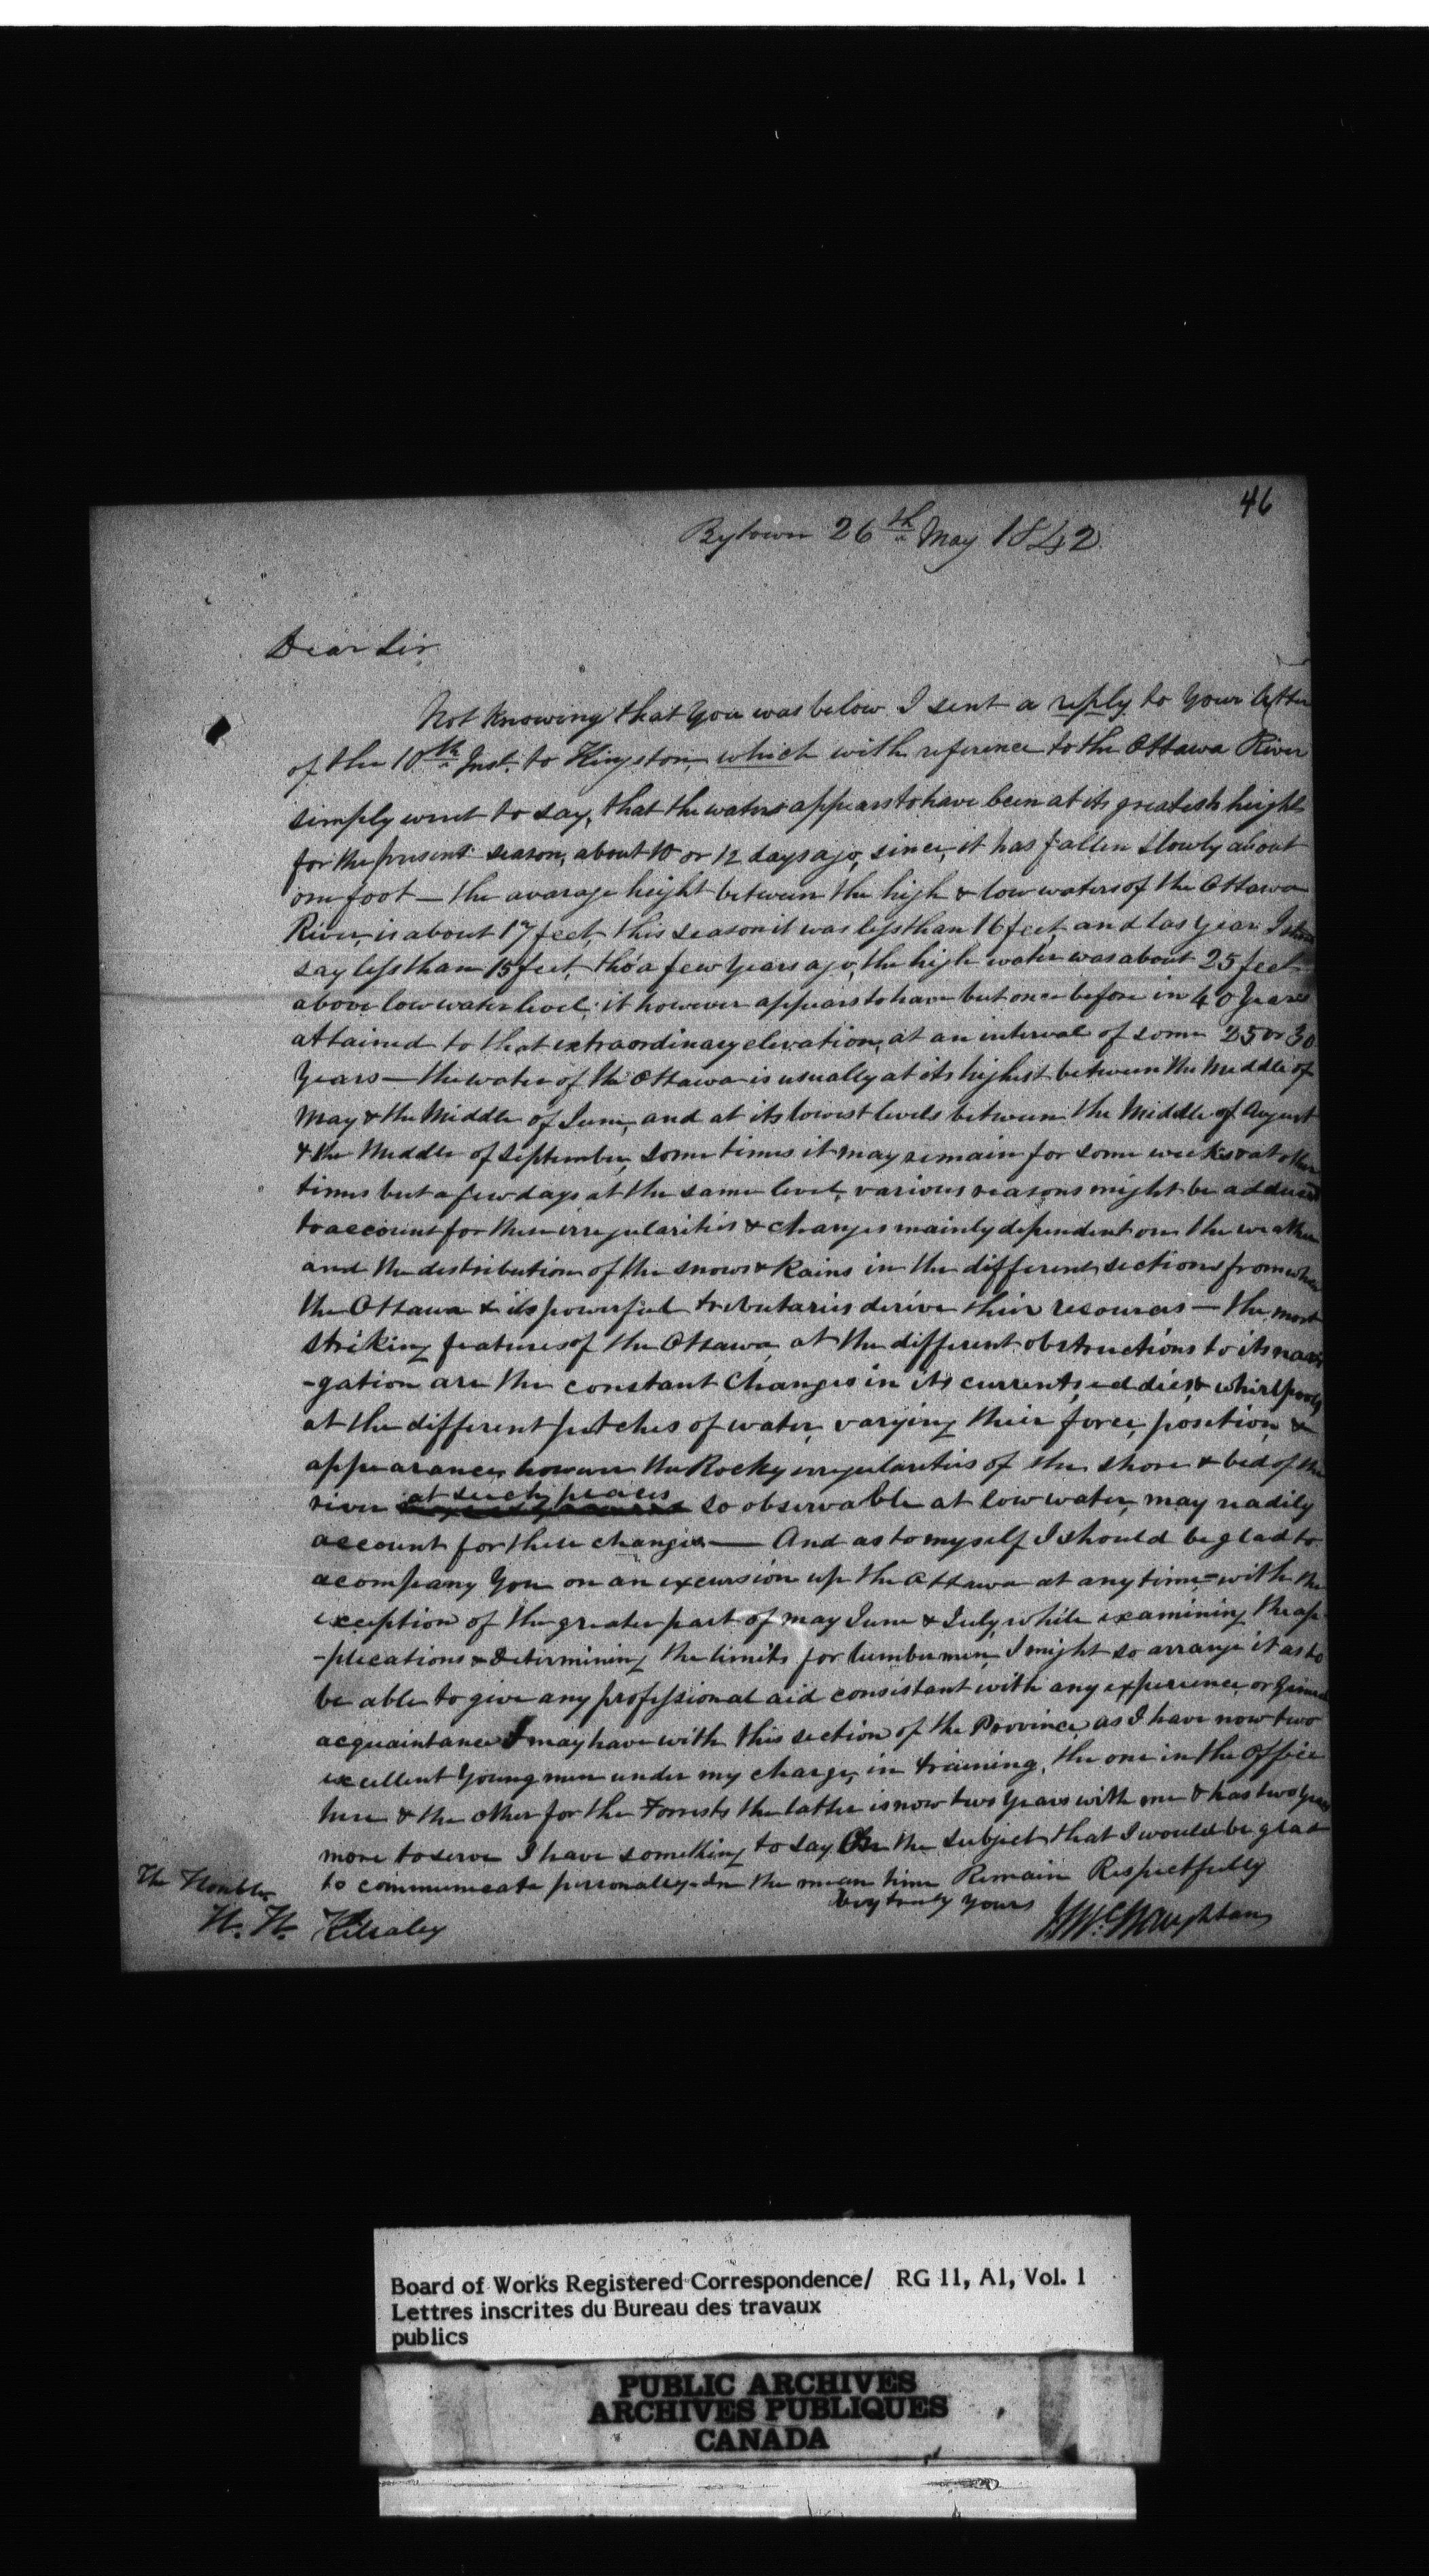 46
Bytown 26th May 1842
Dear Sir
Not knowing that you was below I sent a reply to your letter
of the 10th Inst. to Kingston, which with reference to the Ottawa River
simply went to say, that the waters appears to have been at its greatest height
for the present season, about 10 or 12 days ago, since, it has fallen slowly about
one foot — the avarage height between the high & low waters of the Ottawa
River, is about 17 feet, this season it was less than 16 feet, and las year I
say less than 15 feet, tho' a few years ago, the high water was about 25 feet
above low water level; it however appears to have but once before in 40 years
attained to that extraordinary elevation, at an interval of some 25 or 30
Years — the water of the Ottawa is usually at its highest between the Middle of
May & the Middle of June, and at its lowest levels between the Middle of August
& the Middle of September, some times it may remain for some weeks & at other
times but a few days at the same level, various reasons might be adduced
to account for these irregularities & changes mainly dependent on the weather
and the distribution of the snows & Rains in the different sections from
the Ottawa & its powerful tributaries derive their resources — the most
striking features of the Ottawa, at the different obstructions to its navi
-gation are the constant changes in its currents, eddies, & whirlpools
at the different pitches of water, varying their force, position, &
appearance, however the Rocky irregularities of the shore & bed of the
river at such places so observable at low water, may readily
account for these changes — And as to myself I should be glad to
acompany you on an excursion up the Ottawa at any time - with the
exception of the greater part of may June & July, while examining the ap
-plications & determining the limits for lumbermen, I might so arrange it as to
be able to give any professional aid consistant with any experience or General
acquaintance I may have with this section of the Province, as I have now two
excellent young men under my charge, in training, the one in the office
here & the other for the Forrests the latter is now two years with me & has two years
more to serve I have something to say On the subject that I would be glad
to communicate personally - In the mean time Remain Respectfully
very truly yours
J McNaughton
The Honble
H. H. Killaly
Board of Works Registered Correspondence/ RG 11, A1, Vol. 1
Lettres inscrites du Bureau des travaux
publics
PUBLIC ARCHIVES
ARCHIVES PUBLIQUES
CANADA